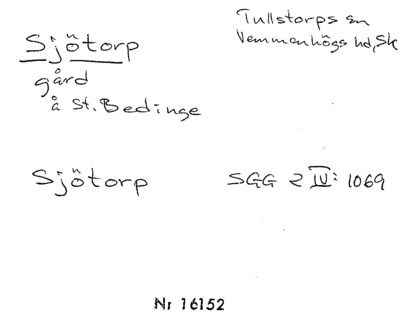 Sjötorp
gård
å St. Bedinge
Tullstorps sn
Vemmenhögs hd, Sk
Sjötorp
SGG 2 IV: 1069
Nr 16152